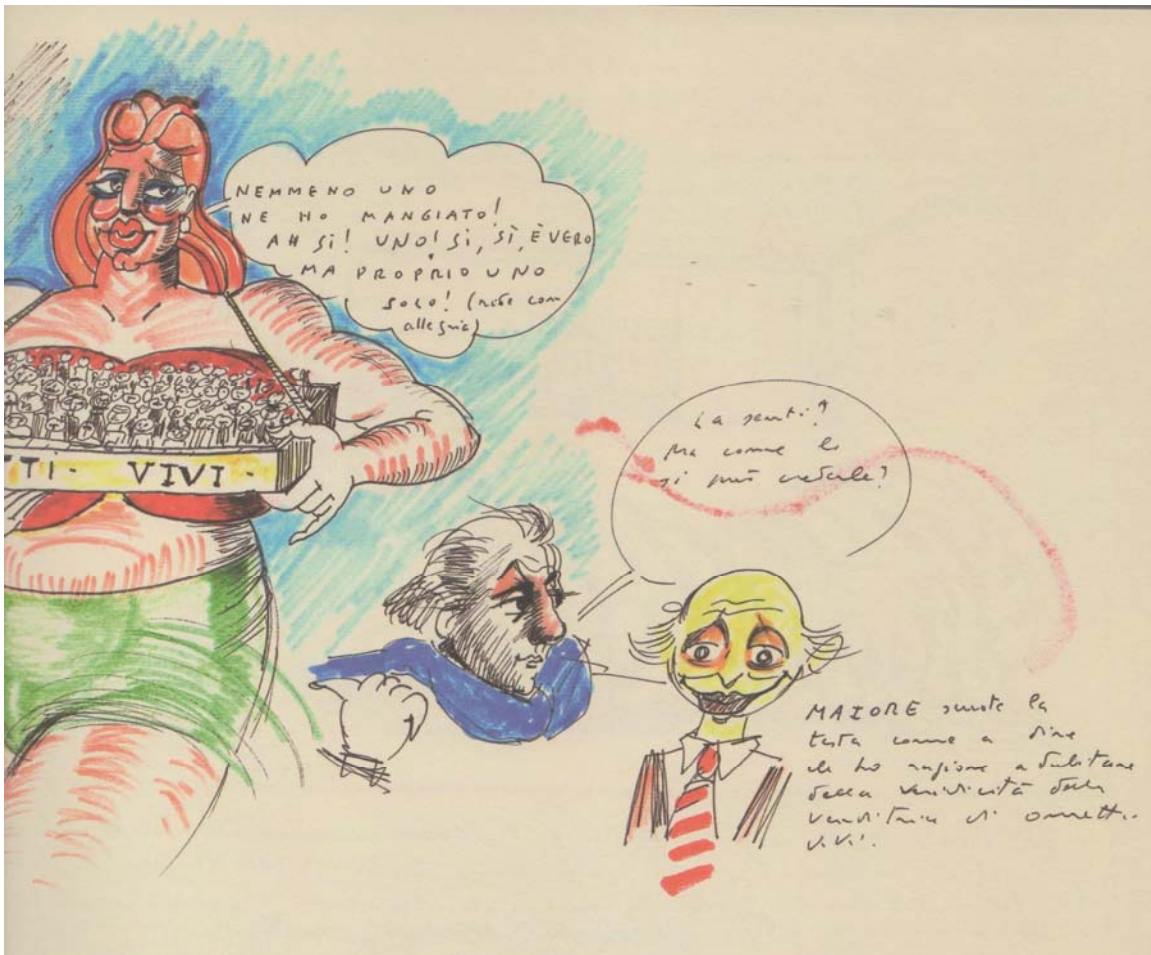 NEMMENO UNO
NE HO MANGIATO!
AH SI! UNO! SI, SÌ, È VERO
MA PROPRIO UNO
SOLO! (ride con
allegria)
TTI - VIVI -
La senti?
Ma come le
si può crederle?
MAIORE scuote la
testa come a dire
che ho ragione a dubitare
della veridicità della
venditrice di ometti
vivi.